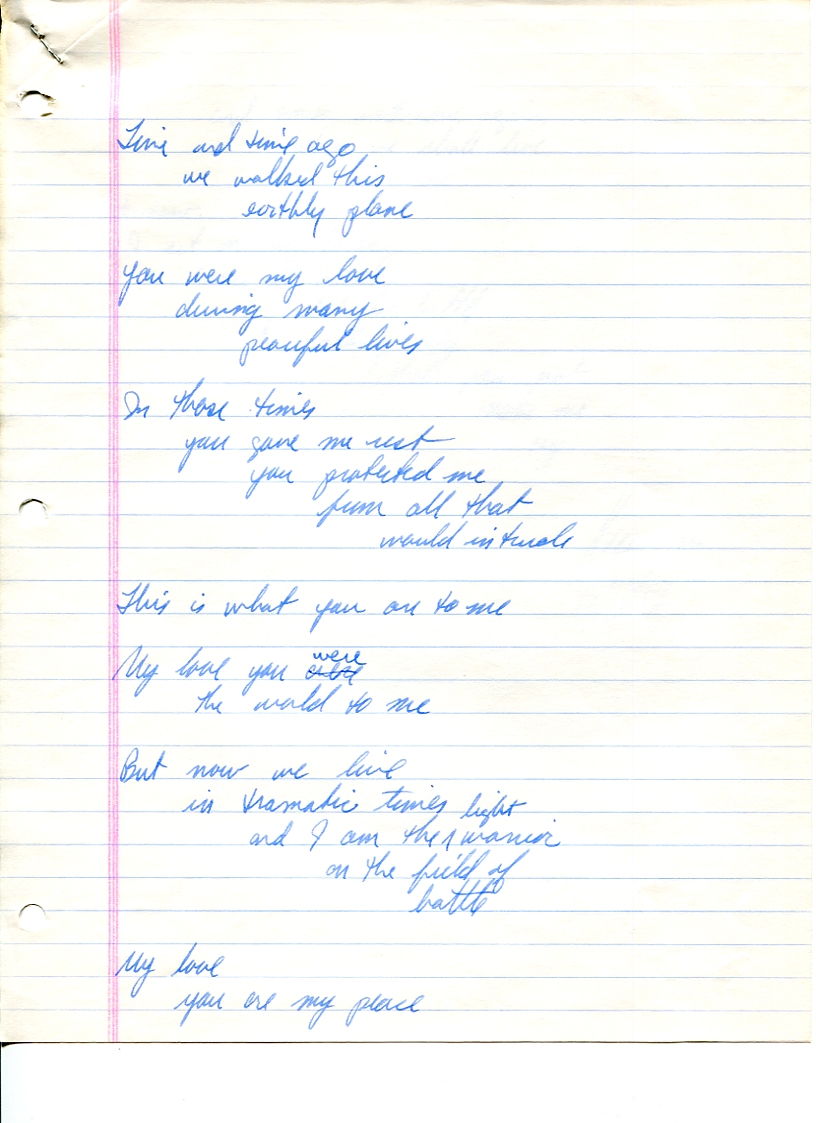 Time and time ago
we walked this
earthly plane
You were my love
during many
peaceful lives
In those times
you gave me rest
you protected me
from all that
would intrude
This is what you are to me
My love you were
the world to me
But now we live
in tramatic times
and I am the light warrior
on the field of
battle
My love
you are my peace